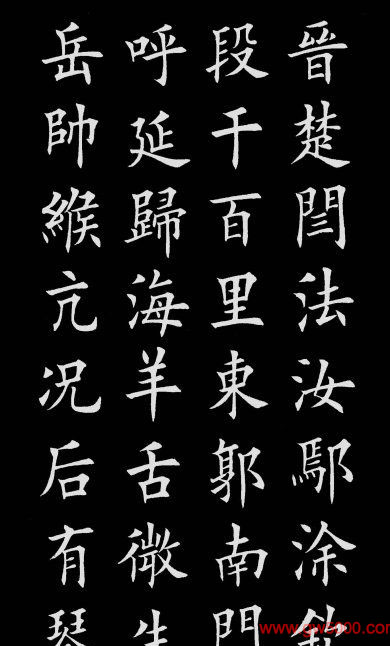 晉楚閆法汝鄢涂
段干百里東郭南門
呼延歸海羊舌微生
岳帥緱亢况后有琴